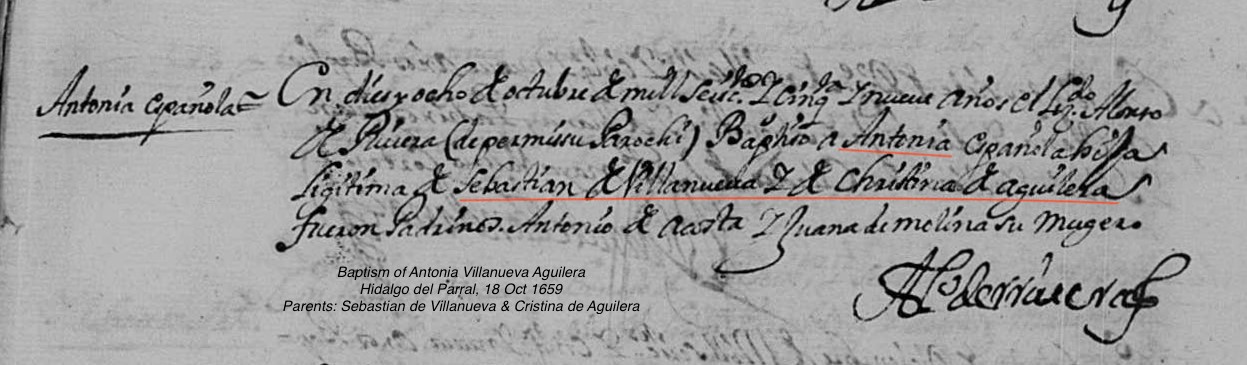 Antonia española
En dies y ocho de octubre de mill seisc.os y cinq.ta y nueve años el L.do Alonso
de Riviera (de permissu Parochi) Baptiso a Antonia española hija
ligitima de Sebastian de Villanueva y de Christina de aguilera
fueron Padrinos. Antonio de acosta y Juana de molina su muger
Baptism of Antonia Villanueva Aguilera
Hidalgo del Parral, 18 Oct 1659
Parents: Sebastian de Villanueva & Cristina de Aguilera